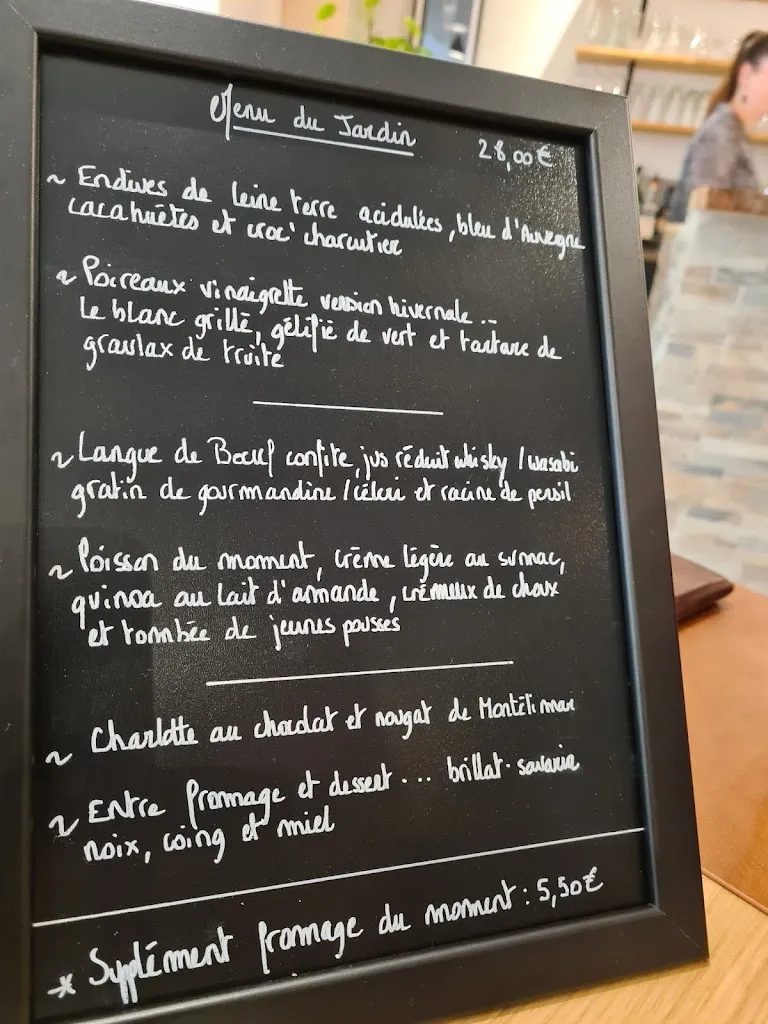 Menu du Jardin
28,00€
~ Endives de pleine terre acidulées, bleu d'Auvergne
cacahuètes et croc' charcutier
~ Poireaux vinaigrette version hivernale...
Le blanc grillé, gélifié de vert et tartare de
gravlax de truite
~ Langue de Boeuf confite, jus réduit whisky / wasabi
gratin de gourmandine / céleri et racine de persil
~ Poisson du moment, crème légère au sumac,
quinoa au lait d'amande, crémeux de choux
et tombée de jeunes pousses
~ Charlotte au chocolat et nougat de Montélimar
~ Entre fromage et dessert... brillat-savarin
noix, coing et miel
* Supplément fromage du moment : 5,50€